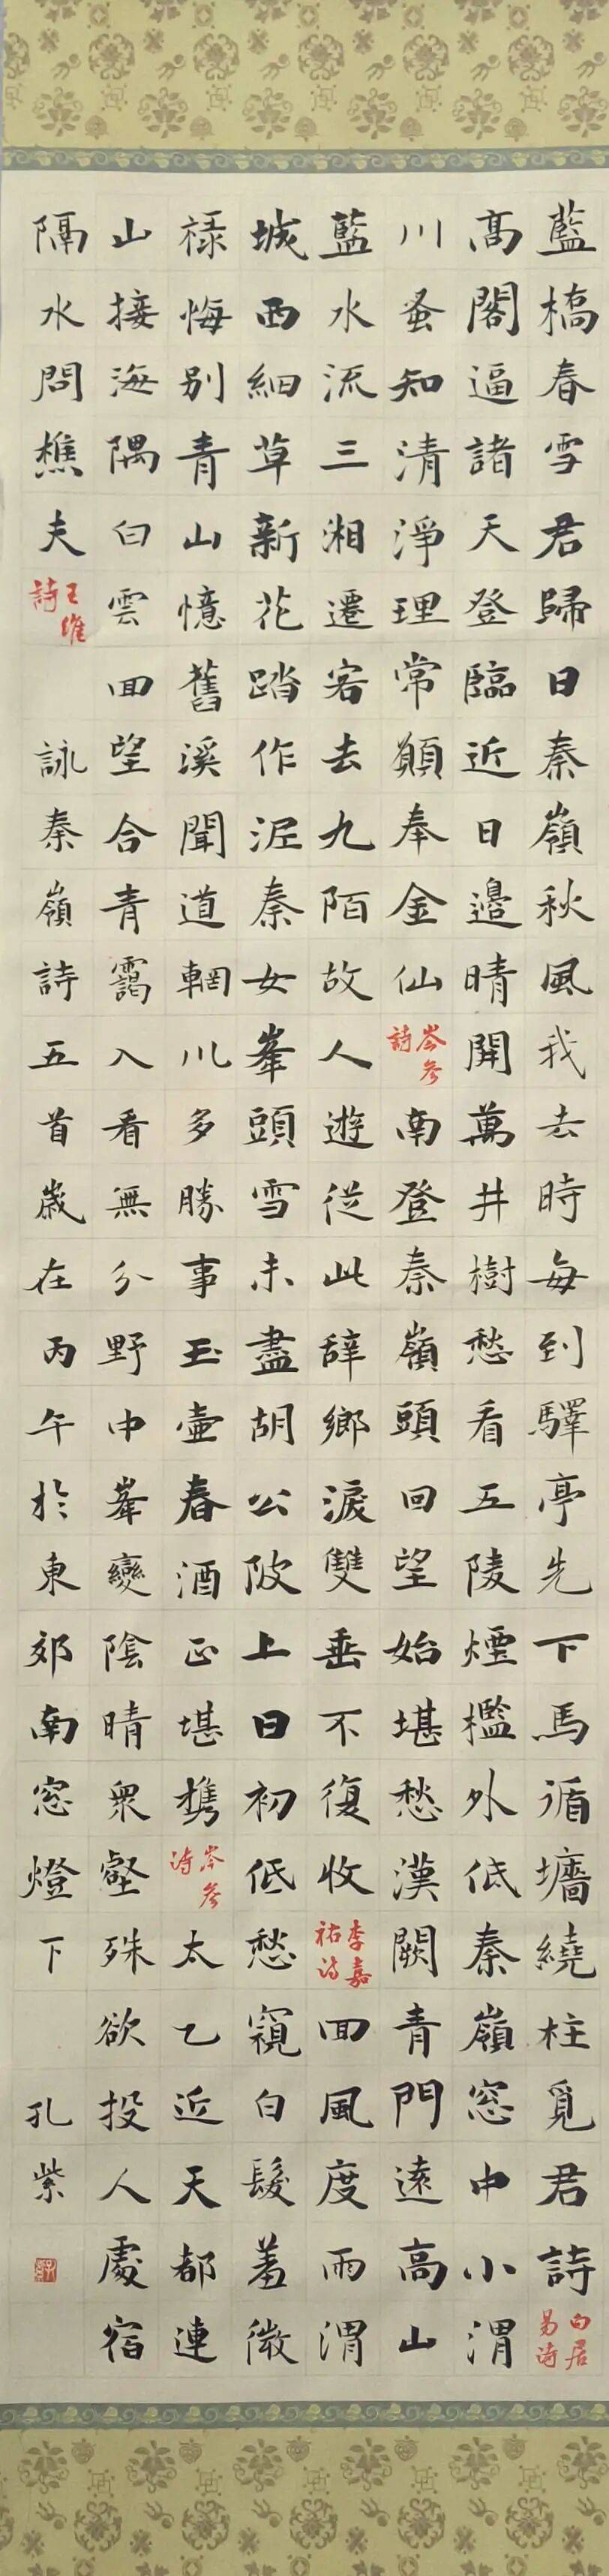 藍橋春雪君歸日秦嶺秋風我去時每到驛亭先下馬循墻繞柱覓君詩白居易詩
高閣逼諸天登臨近日邊晴開萬井樹愁看五陵煙檻外低秦嶺窓中小渭
川蚤知清淨理常願奉金仙岑參詩南登秦嶺頭回望始堪愁漢闕青門遠高山
藍水流三湘遷客去九陌故人遊從此辭鄉淚雙垂不復收李嘉祐詩回風度雨渭
城西細草新花踏作泥秦女峯頭雪未盡胡公陂上日初低愁窺白髮羞微
祿悔別青山憶舊溪聞道輞川多勝事玉壺春酒正堪携岑參詩太乙近天都連
山接海隅白雲回望合青靄入看無分野中峯變陰晴衆壑殊欲投人處宿
隔水問樵夫王維詩 詠秦嶺詩五首歲在丙午於東郊南窓燈下 孔紫